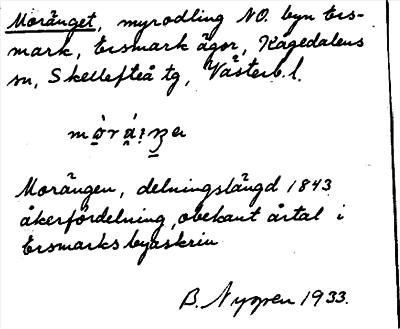 Moränget, myrodling NO. byn Ers-
mark, Ersmark ägor, Kågedalens
sn, Skellefteå tg, Västerb. l.
Morängen, delningslängd 1843
åkerfördelning, obekant årtal i
Ersmarks byaskrin
B. Nygren 1933.